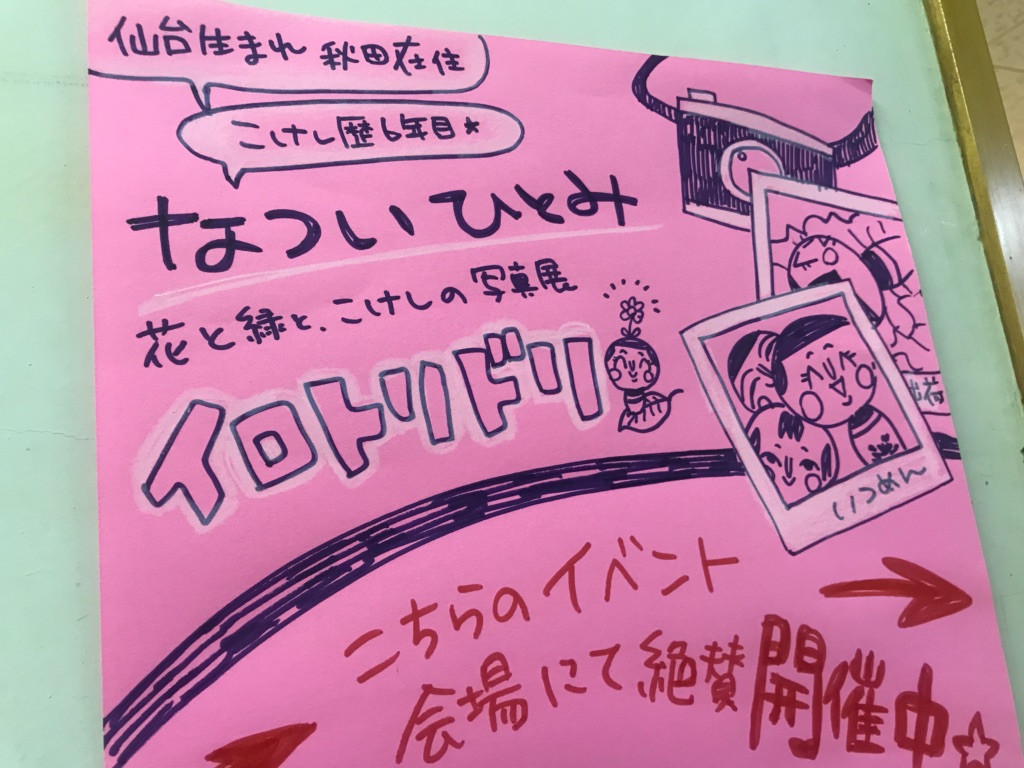 仙台生まれ 秋田在住
こけし歴6年目★
なつい ひとみ
花と緑と、こけしの写真展
イロトリドリ
出荷
いつめん
こちらのイベント
会場にて絶賛開催中☆